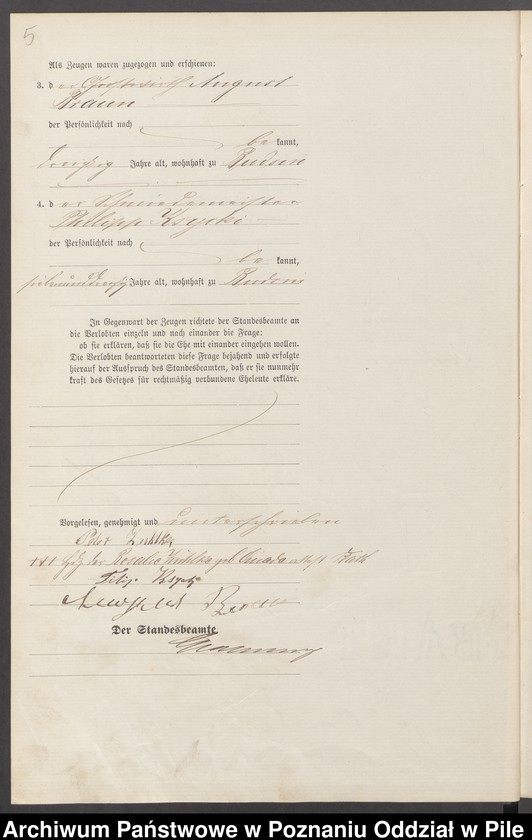 5
Als Zeugen waren zugezogen und erschienen:
3. der August
Braun
der Persönlichkeit nach
bekannt,
Jahre alt, wohnhaft zu
4. der Schmiedemeister
Philipp Ksycki
der Persönlichkeit nach
bekannt,
Jahre alt, wohnhaft zu
In Gegenwart der Zeugen richtete der Standesbeamte an
die Verlobten einzeln und nach einander die Frage:
ob sie erklären, daß sie die Ehe mit einander eingehen wollen.
Die Verlobten beantworteten diese Frage bejahend und erfolgte
hierauf der Ausspruch des Standesbeamten, daß er sie nunmehr
kraft des Gesetzes für rechtmäßig verbundene Eheleute erkläre.
Vorgelesen, genehmigt und unterschrieben
Peter
+++ der Rosalie geb.
Filip Ksycki
August Braun
Der Standesbeamte
Archiwum Państwowe w Poznaniu Oddział w Pile